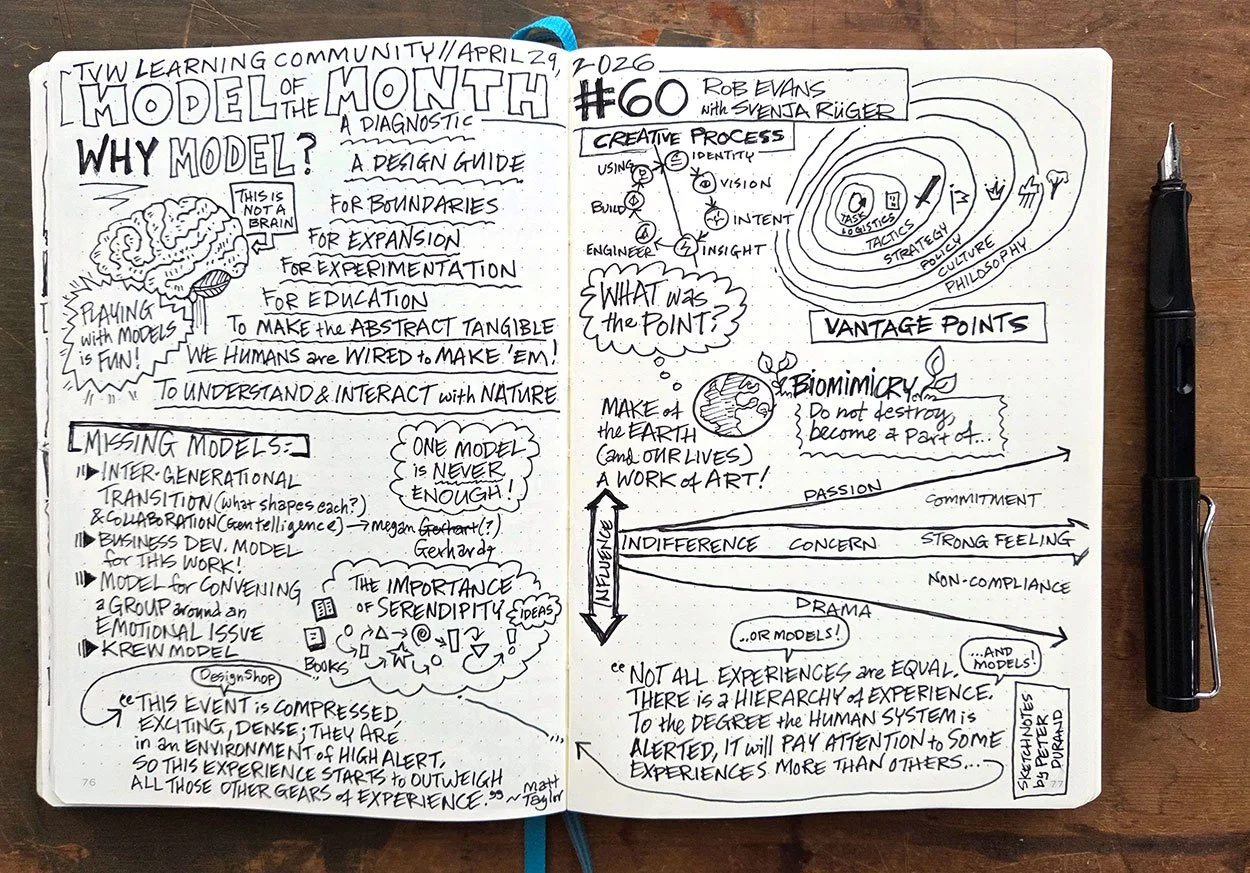 TVW LEARNING COMMUNITY // APRIL 29, 2026
MODEL OF THE MONTH
#60
ROB EVANS
with SVENJA RÜGER
WHY MODEL?
A DIAGNOSTIC
A DESIGN GUIDE
FOR BOUNDARIES
FOR EXPANSION
FOR EXPERIMENTATION
FOR EDUCATION
To MAKE the ABSTRACT TANGIBLE
WE HUMANS are WIRED to MAKE 'EM!
To UNDERSTAND & INTERACT with NATURE
THIS IS
NOT A
BRAIN
PLAYING
with MODELS
is FUN!
MISSING MODELS:
INTER-GENERATIONAL
TRANSITION (what shapes each?)
& COLLABORATION (Gentelligence) → megan Gerhart (?)
Gerhardt
BUSINESS DEV. MODEL
for THIS WORK!
MODEL for CONVENING
a GROUP around an
EMOTIONAL ISSUE
KREW MODEL
ONE MODEL
is NEVER
ENOUGH!
THE IMPORTANCE
OF SERENDIPITY
IDEAS
BOOKS
DesignShop
"THIS EVENT is COMPRESSED,
EXCITING, DENSE; THEY ARE
in an ENVIRONMENT of HIGH ALERT.
SO THIS EXPERIENCE STARTS to OUTWEIGH
ALL THOSE OTHER GEARS of EXPERIENCE."
~ Matt
Taylor
76
CREATIVE PROCESS
IDENTITY
VISION
INTENT
INSIGHT
ENGINEER
BUILD
USING
WHAT was
the POINT?
TASK
LOGISTICS
TACTICS
STRATEGY
POLICY
CULTURE
PHILOSOPHY
VANTAGE POINTS
BIOMIMICRY
Do not destroy,
become a part of...
MAKE of
the EARTH
(and OUR LIVES)
A WORK of ART!
INFLUENCE
PASSION
COMMITMENT
INDIFFERENCE CONCERN STRONG FEELING
NON-COMPLIANCE
DRAMA
...OR MODELS!
...AND
MODELS!
"NOT ALL EXPERIENCES are EQUAL.
THERE is a HIERARCHY of EXPERIENCE.
To the DEGREE the HUMAN SYSTEM is
ALERTED, IT will PAY ATTENTION to SOME
EXPERIENCES MORE THAN OTHERS...
SKETCHNOTES
by PETER
DURAND
77